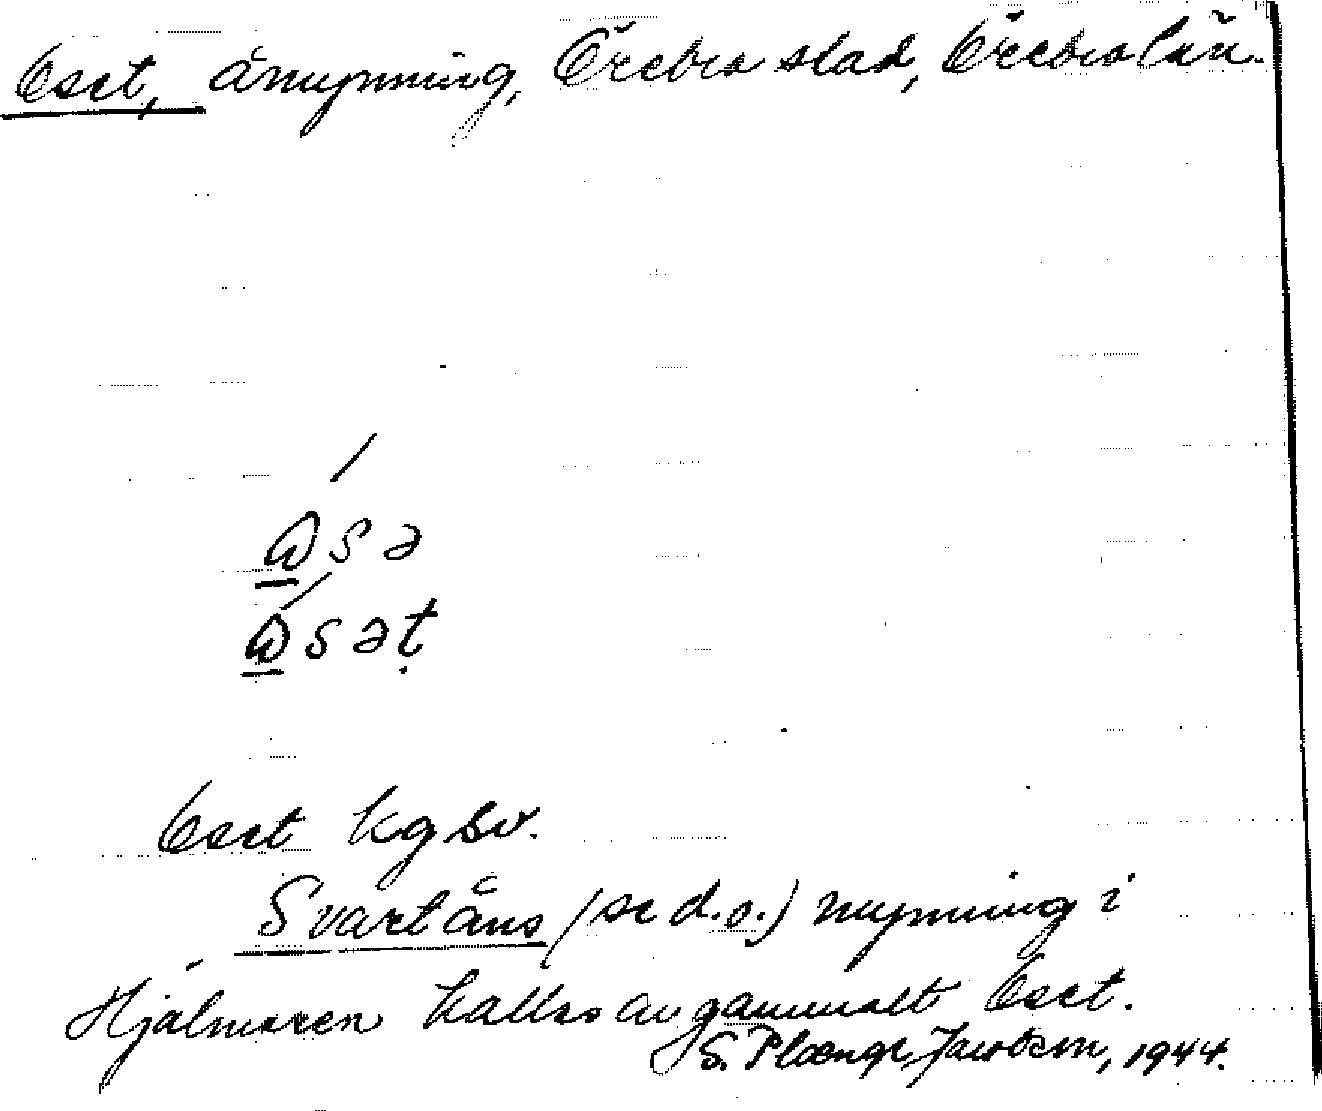 Oset, åmynning, Örebro stad, Örebro län.
sə
səṭ
Oset kgsv.
Svartåns (se d.o.) mynning i
Hjälmaren kallas av gammalt Oset.
S. Plænge Jacobson, 1944.